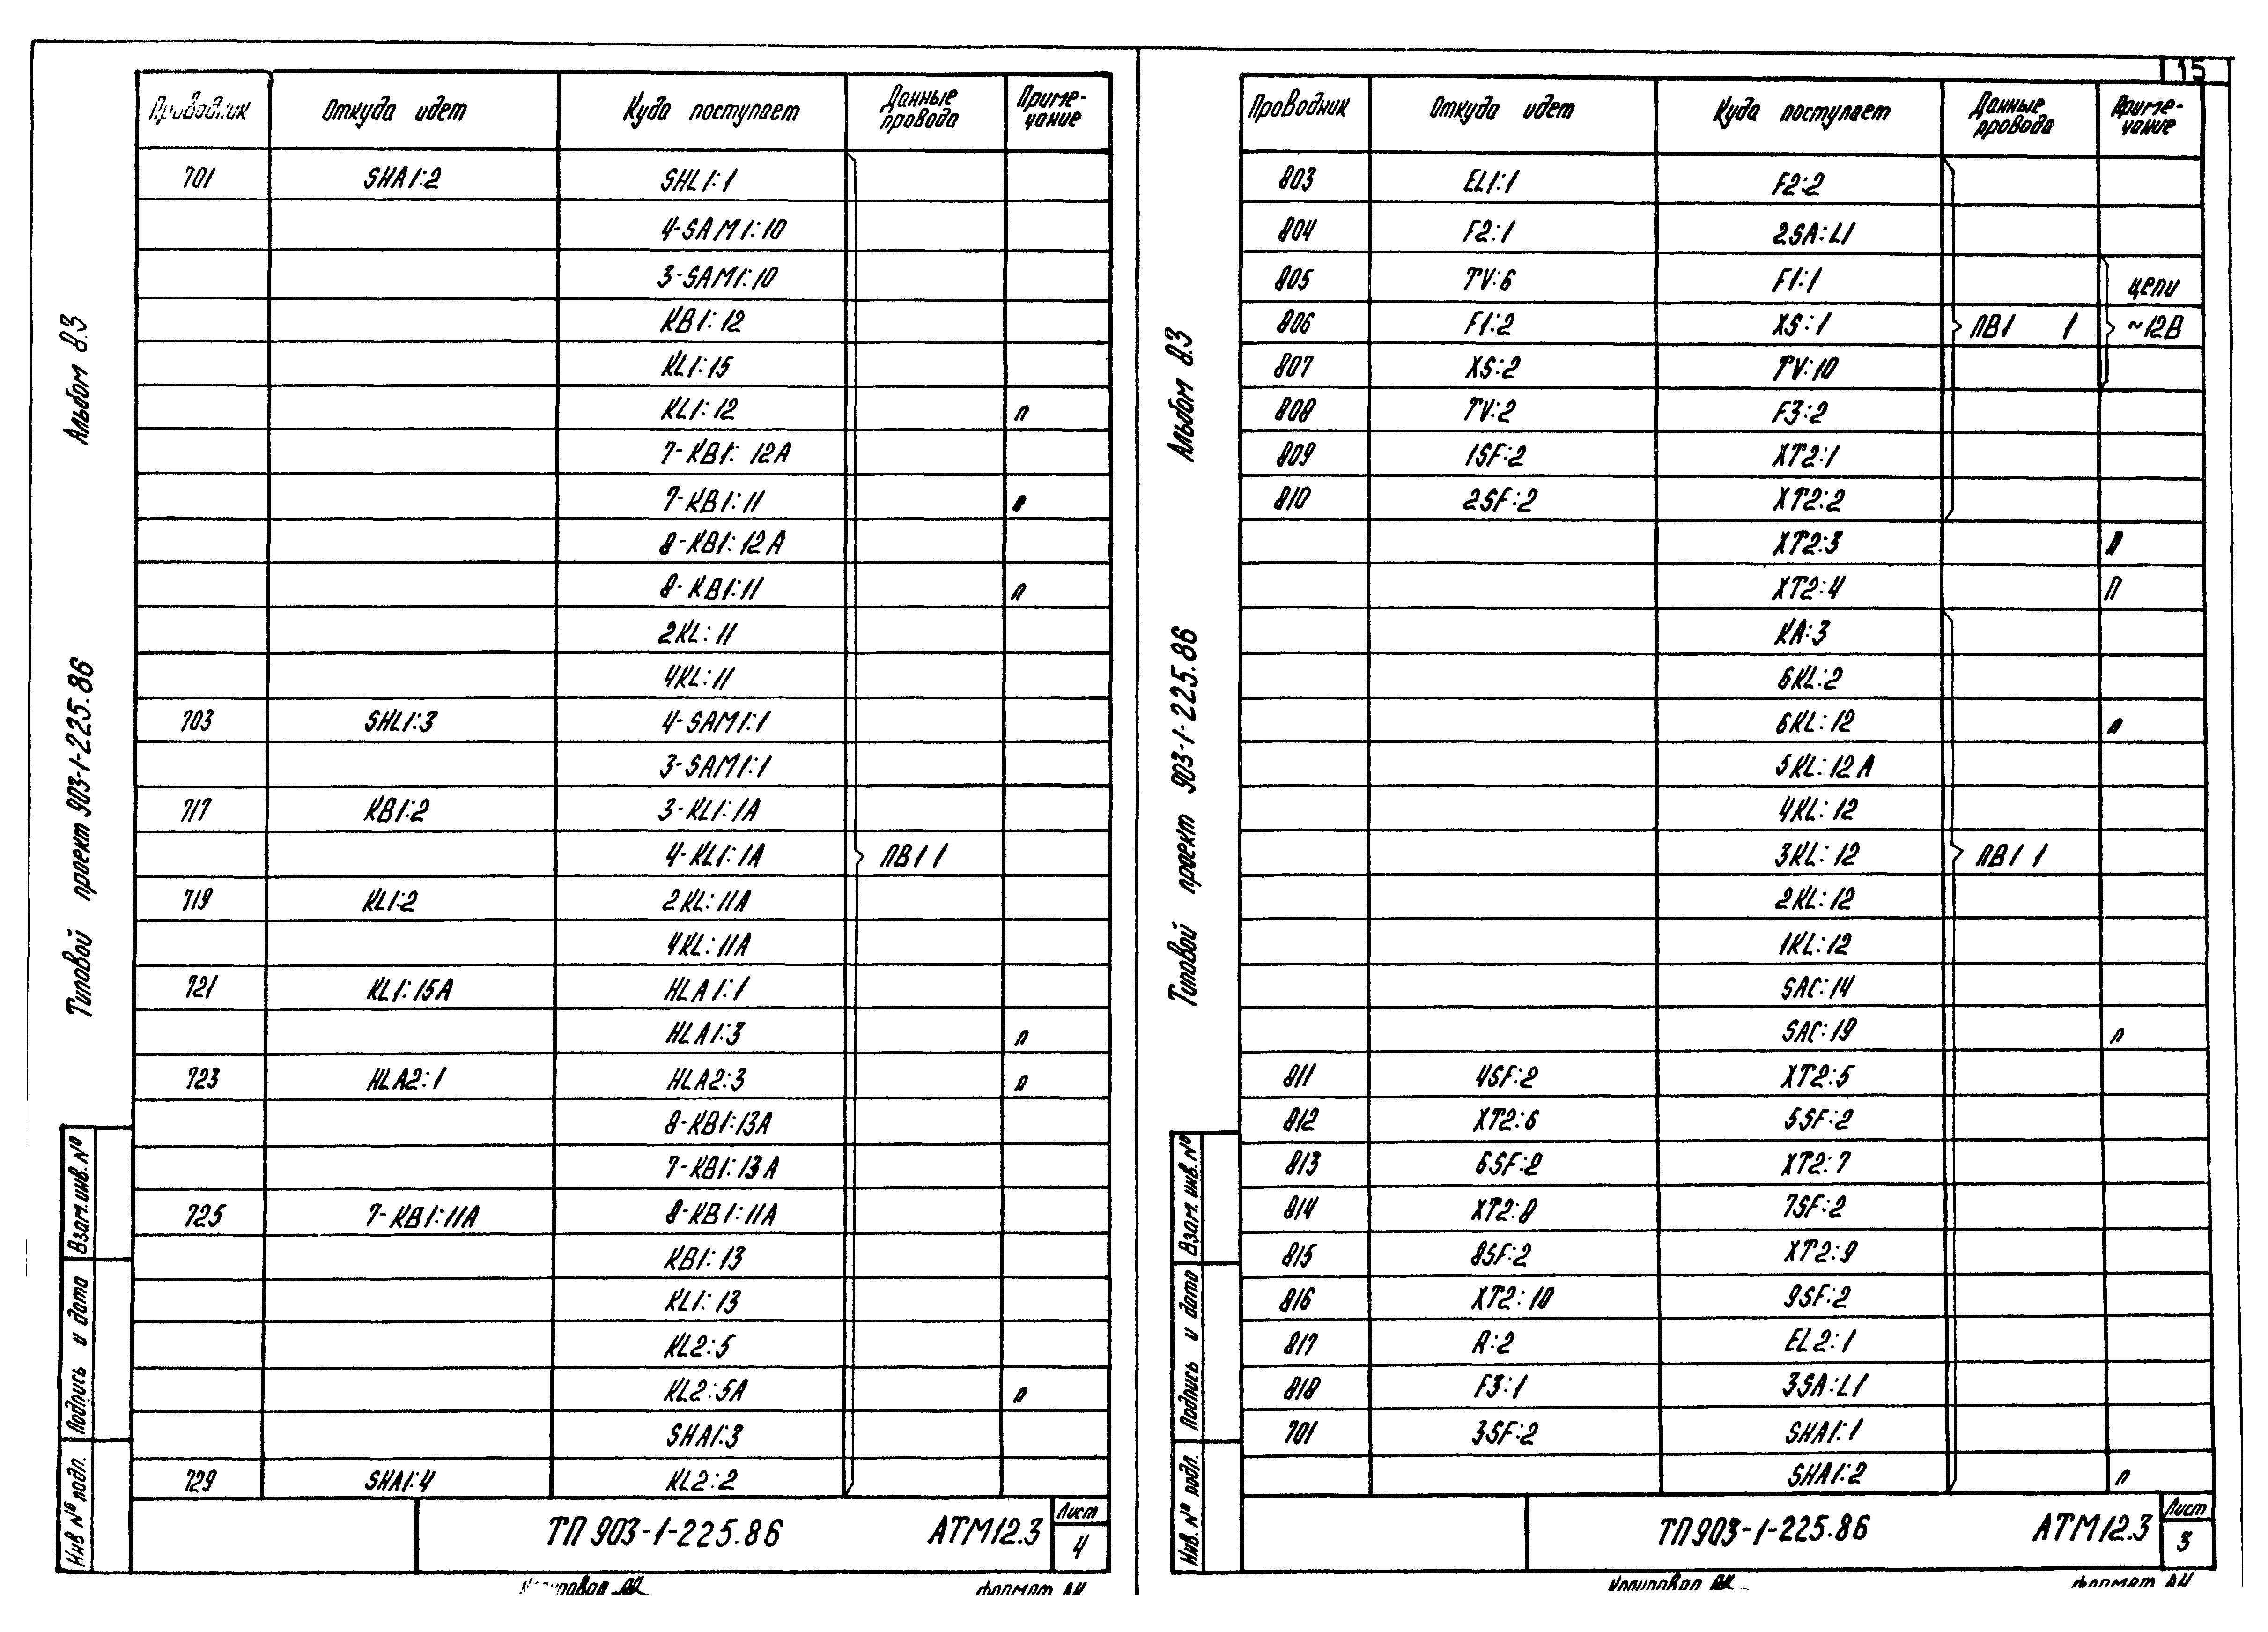 15
Альбом 8.3
Типовой проект 903-1-225.86
Взам. инв. №
Подпись и дата
Инв № подл.
Проводник Откуда идет Куда поступает Данные провода Примечание
701 SHA1:2 SHL1:1
4-SAM1:10
3-SAM1:10
KB1:12
KL1:15
KL1:12 п
7-KB1:12A
7-KB1:11 п
8-KB1:12A
8-KB1:11 п
2KL:11
4KL:11
703 SHL1:3 4-SAM1:1
3-SAM1:1
717 KB1:2 3-KL1:1A
4-KL1:1A ПВ1 1
719 KL1:2 2KL:11A
4KL:11A
721 KL1:15A HLA1:1
HLA1:3 п
723 HLA2:1 HLA2:3 п
8-KB1:13A
7-KB1:13A
725 7-KB1:11A 8-KB1:11A
KB1:13
KL1:13
KL2:5
KL2:5A п
SHA1:3
729 SHA1:4 KL2:2
ТП 903-1-225.86 АТМ12.3 Лист 4
Копировал формат А4
Альбом 8.3
Типовой проект 903-1-225.86
Взам. инв. №
Подпись и дата
Инв. № подл.
Проводник Откуда идет Куда поступает Данные провода Примечание
803 EL1:1 F2:2
804 F2:1 2SA:L1
805 TV:6 F1:1 цепи
806 F1:2 XS:1 ПВ1 1 ~12В
807 XS:2 TV:10
808 TV:2 F3:2
809 1SF:2 XT2:1
810 2SF:2 XT2:2
XT2:3 п
XT2:4 п
KA:3
6KL:2
6KL:12 п
5KL:12A
4KL:12
3KL:12 ПВ1 1
2KL:12
1KL:12
SAC:14
SAC:19 п
811 4SF:2 XT2:5
812 XT2:6 5SF:2
813 6SF:2 XT2:7
814 XT2:8 7SF:2
815 8SF:2 XT2:9
816 XT2:10 9SF:2
817 R:2 EL2:1
818 F3:1 3SA:L1
701 3SF:2 SHA1:1
SHA1:2 п
ТП 903-1-225.86 АТМ12.3 Лист 3
Копировал формат А4